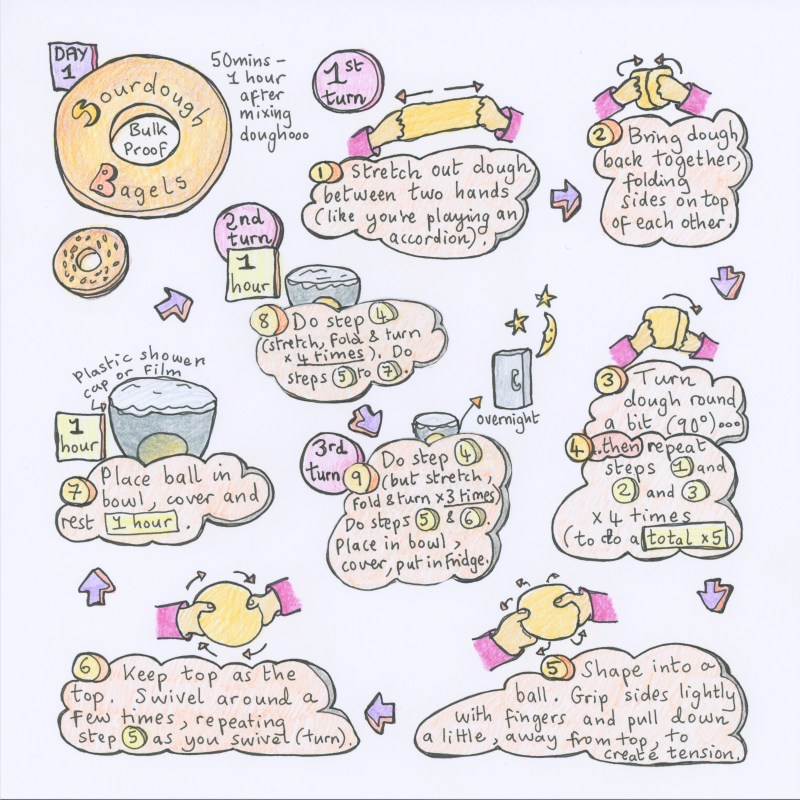 DAY
1
Sourdough
Bulk
Proof
Bagels
50mins -
1 hour
after
mixing
dough...
1st
turn
1 Stretch out dough
between two hands
(like you're playing an
accordion).
2 Bring dough
back together,
folding
sides on top
of each other.
3 Turn
dough round
a bit (90°)...
4 ..then repeat
steps 1 and
2 and 3
x 4 times
(to do a total x5)
5 Shape into a
ball. Grip sides lightly
with fingers and pull down
a little, away from top, to
create tension.
6 Keep top as the
top. Swivel around a
few times, repeating
step 5 as you swivel (turn).
Plastic shower
cap or film
1
hour
7 Place ball in
bowl, cover and
rest 1 hour.
2nd
turn
1
hour
8 Do step 4
(stretch, fold & turn
x 4 times). Do
steps 5 to 7.
3rd
turn
9 Do step 4
(but stretch,
fold & turn x 3 times.
Do steps 5 & 6.
Place in bowl,
cover, put in fridge.
overnight